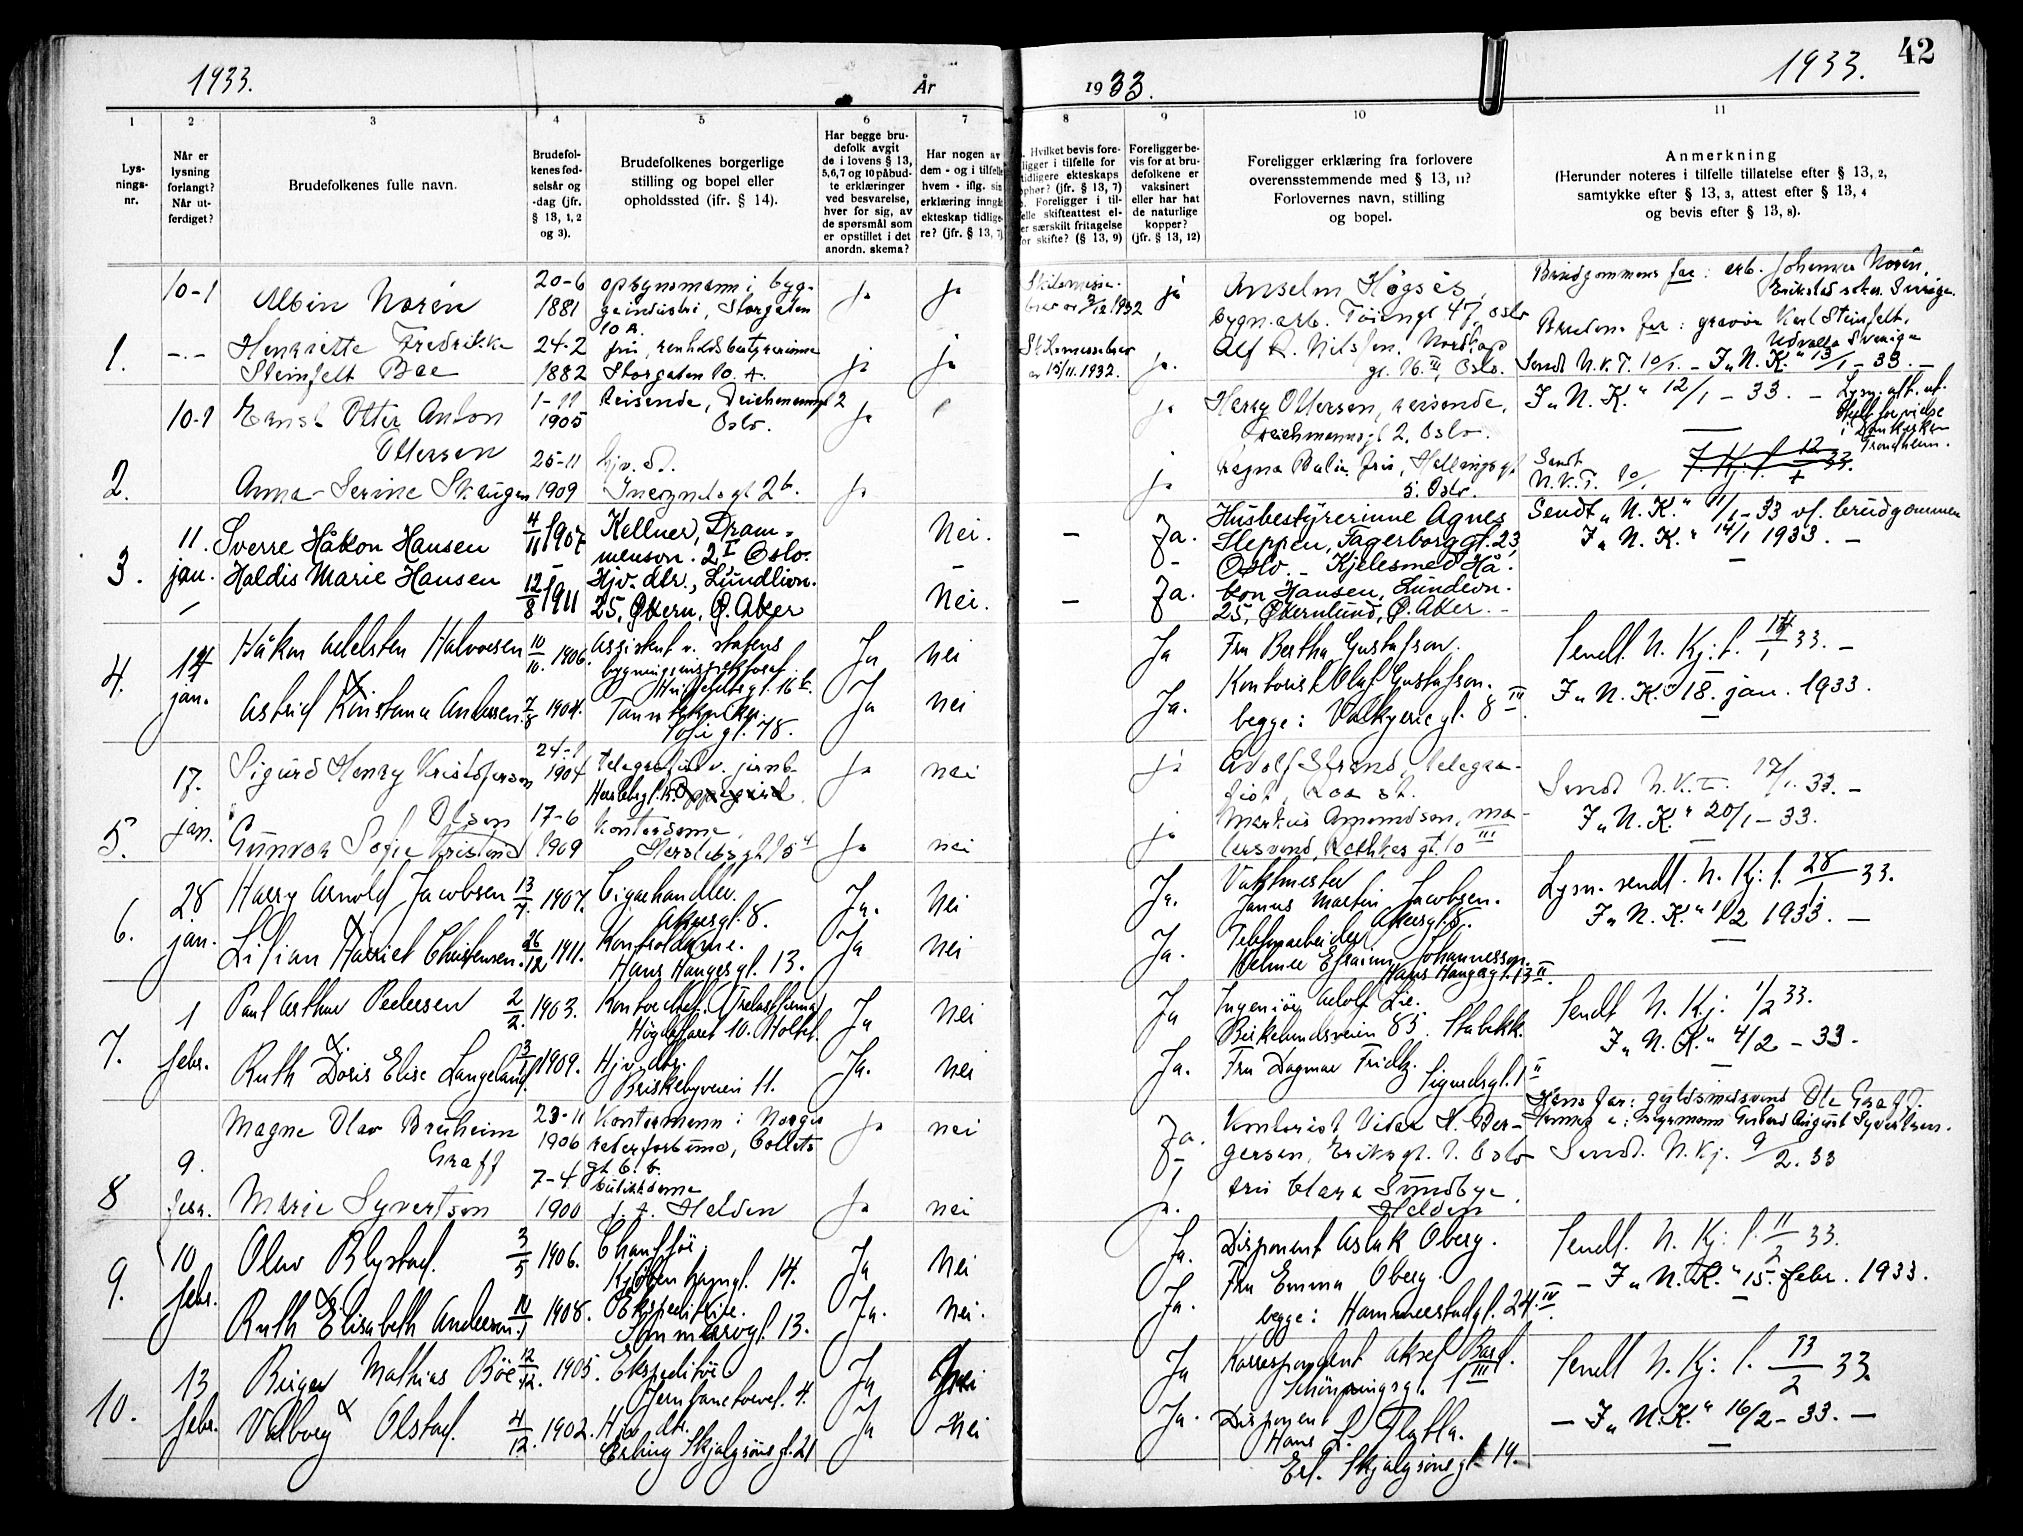 42
1933.
År
1933.
1933.
1
2
3
4
5
6
7
8
9
10
11
Lys-
nings-
nr.
Når er
lysning
forlangt?
Når ut-
ferdiget?
Brudefolkenes fulle navn.
Brudefol-
kenes fød-
selsår og
-dag (jfr.
§ 13, 1, 2
og 3).
Brudefolkenes borgerlige
stilling og bopel eller
opholdssted (jfr. § 14).
Har begge bru-
defolk avgit
de i lovens § 13,
5,6,7 og 10 påbud-
te erklæringer
ved besvarelse,
hver for sig, av
de spørsmål som
er opstillet i det
anordn. skema?
Har nogen av
dem - og i tilfelle
hvem - iflg. sin
erklæring inngå
ekteskap tidlige-
re? (jfr. § 13, 7)
Hvilket bevis fore-
ligger i tilfelle for
tidligere ekteskaps
ophør? (jfr. § 13, 7)
Foreligger i til-
felle skifteattest el-
er særskilt fritagelse
for skifte? (§ 13, 9)
Foreligger be-
vis for at bru-
defolkene er
vaksinert
eller har hat
de naturlige
kopper?
(jfr. § 13, 12)
Foreligger erklæring fra forlovere
overensstemmende med § 13, 11?
Forlovernes navn, stilling
og bopel.
Anmerkning
(Herunder noteres i tilfelle tillatelse efter § 13, 2,
samtykke efter § 13, 3, attest efter § 13, 4
og bevis efter § 13, 8).
1.
10-1
Albin Norén
20-6
1881
opsynsmann i byg-
geindustri, Storgaten
10 A.
ja
ja
Skilsmisse-
ja
Anselm Høgsås
bygn.arb. Tøiengt 47, Oslo
Brudgommens far: arb. Johannes Norén,
-.-
Henriette Fredrikke
Steinfelt Bae
24-2
1882
fru, renholdsbestyrerinne
Storgaten 10 A.
ja
ja
Skilsmissebrev
av 15/11.1932.
ja.
Alf R. Nilssen, Nordkap
gt. 16 III, Oslo.
Brudens far: gravør Karl Steinfelt,
Udvalla Sverige
Sendt N.K.T. 10/1. - I "N.K." 13/1 - 33. -
2.
10-1
Ernst Otter Anton
Ottersen
1-11
1905
Reisende, Deichmannsgt 2
Oslo.
ja
ja
Harry Ottersen, reisende,
Deichmannsgt 2. Oslo.
I "N.K." 12/1 - 33. -
Trondheim.
Anna-Serine Skaugen
25-11
1909
hjv. d.
2b.
ja
ja
Oslo.
Sendt
N.K.T. 10/
3.
11.
jan.
Sverre Håkon Hansen
4/11 1907
Kellner, Dram-
mensv. 2 I Oslo.
Nei.
-
Ja.
Husbestyrerinne Agnes
Sleppen, Fagerborggt. 23,
Oslo. - Kjelesmed Hå-
Sendt "N.K." 11/1 - 33 vf. brudgommen
I "N.K." 14/1 1933. -
Haldis Marie Hansen
12/8 1911
Hjv. dtr., Lundlivn.
25, Økern, Ø. Aker
Nei.
-
Ja.
kon Hansen, Lundevn.
25, Økernlund, Ø. Aker. -
4.
14
jan.
Håkon Adelsten Halvorsen
10/10. 1906.
Assistent v. statens
bygningsinspektorat.
Huitfeldtsgt. 16b.
Ja
Nei
Ja
Fru Bertha Gustafson.
Kontorist Olaf Gustafson.
Sendt. N. Kj. t. 14/1 33. -
I "N.K." 18. jan. 1933.
Astrid Konstance Andersen.
7/8 1904.
Tofte gt. 78.
Ja
Nei
Ja.
begge: Valkyriegt. 8 III.
5.
17.
jan.
Sigurd Henry Kristofersen
Olsen
24-1
1904
telegrafist v. jernb.
ja
nei
ja
Adolf Strand, telegra-
fist, Roa st.
Sendt N.K.T. 17/1. 33. -
I "N.K." 20/1 - 33.
Gunvor Sofie Kristensen
17-6
1909
Kontordame,
Herslebsgt 15
ja
nei
ja
Markus Amundsen, ma-
lersvend, Rathkes gt. 10 III
6.
28
jan.
Harry Arnold Jacobsen
13/7. 1907.
Cigarhandler.
Akersgt. 8.
Ja.
Nei
Ja.
Vaktmester
Janus Martin Jacobsen.
Akersgt. 8.
Lysn. sendt. N. Kj: t. 28/1 33.
I "N.K." 1/2 1933. -
Lilian Harriet Christensen.
26/12 1911.
Kontordame.
Hans Haugesgt. 13.
Ja
Nei
Ja.
Telefonarbeider
Helmer Efraim Johannesson.
Hans Haugesgt. 13 II.
7.
1
febr.
Paul Arthur Pedersen
2/2. 1903.
Kontorchef. (Trelastfirma)
Høgdefaret 10. Holtet.
Ja
Nei
Ja
Ingeniør Adolf Lie.
Birkelundsveien 85. Stabekk.
Sendt N. Kj: 1/2 33.
I "N.K." 4/2 - 33.
Ruth Doris Elise Langeland
1909.
Hjv. dtr.
Briskebyveien 11.
Ja.
Nei
Ja.
Fru Dagmar Fridtz.
Sigurdsgt. 1 II
8
9.
febr.
Magne Olav Bruheim
Graff
23-11
1906
Kontormann i Norges
Rederforbund, Collets
gt. 6 b.
ja
nei
Ja.
Kontorist Vidar H. Ber-
gersen, Eriksgt. 1. Oslo
Hans far: gullsmedsvend Ole Graff.
Sendt. N.Kj. 9/2. 33
Marie Syvertsen
7-4.
1900
butikkdame
p. t. Halden
ja
nei
j.
Fru Clara Sundbye.
Halden
9.
10
febr.
Olav Blystad.
3/5 1906.
Chauffør.
Kjøbenhavngt. 14.
Ja
Nei
Ja.
Disponent Aslak Oberg.
Fru Emma Oberg.
Sendt. N. Kj: t. 11/2 33.
- I "N.K." 15. febr. 1933.
Ruth Elisabeth Andersen.
10/1 1908.
Ekspeditrise.
Sannergt. 13.
Ja.
Nei.
Ja.
begge: Hammerstadgt. 24 IV.
10.
13
febr.
Birger Mathias Böe.
12/12. 1905.
Ekspeditør
Jernbanetorvet. 4.
Ja
Nei
Ja
Korrespondent Aksel Bard.
Schönningsgt. 1 III
Sendt N. Kj: t. 13/2 33.
- I "N.K." 16/2 - 33. -
Valborg Olstad.
4/12. 1902.
Hjv. dtr.
Erling Skjalgsöns gt. 21
Ja
Nei
Ja.
Disponent
Hans L. Flatla.
Erl. Skjalgsöns gt. 19.